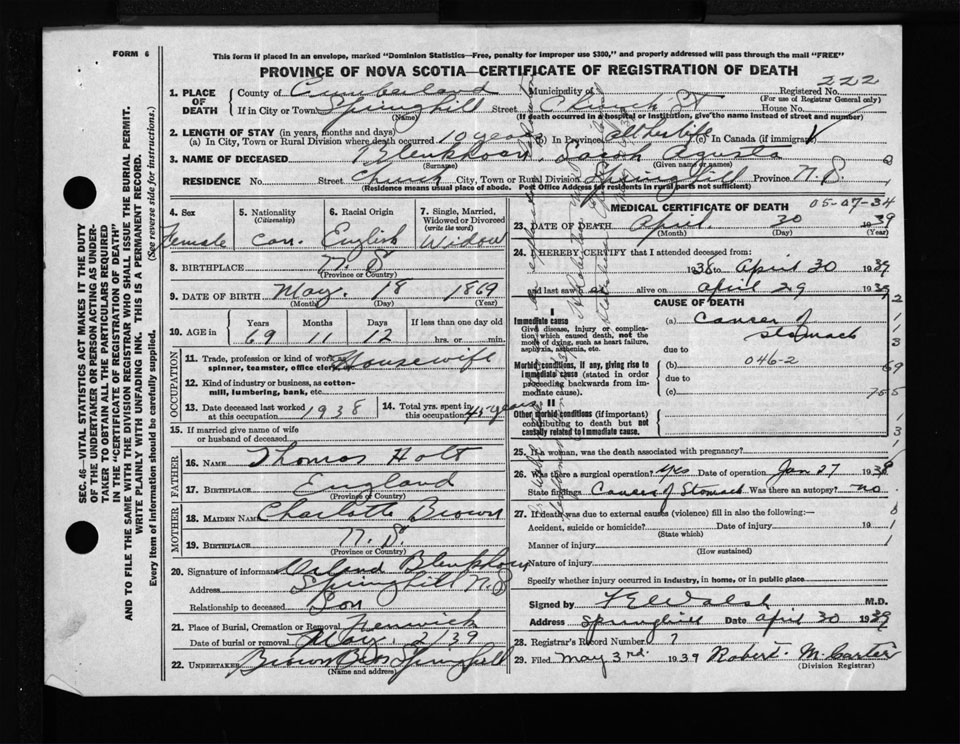 FORM 6
This form if placed in an envelope, marked "Dominion Statistics—Free, penalty for improper use $300," and properly addressed will pass through the mail "FREE"
PROVINCE OF NOVA SCOTIA—CERTIFICATE OF REGISTRATION OF DEATH
222
1. PLACE OF DEATH
County of Cumberland Municipality of Registered No.
(For use of Registrar General only)
If in City or Town Springhill Street Church St House No.
(Name) (If death occurred in a hospital or institution, give the name instead of street and number)
2. LENGTH OF STAY (in years, months and days)
(a) In City, Town or Rural Division where death occurred 10 years (b) In Province all her life (c) In Canada (if immigrant)
3. NAME OF DECEASED Blenkhorn, Sarah Agusta
(Surname) (Given name or names)
RESIDENCE No. Street Church City, Town or Rural Division Springhill Province N.S.
(Residence means usual place of abode. Post Office Address for residents in rural parts not sufficient)
4. Sex
Female
5. Nationality
(Citizenship)
Can.
6. Racial Origin
English
7. Single, Married, Widowed or Divorced
(write the word)
Widow
8. BIRTHPLACE N.S
(Province or Country)
9. DATE OF BIRTH May. 18 1869
(Month) (Day) (Year)
10. AGE in
Years Months Days If less than one day old
69 11 12 hrs. or min.
OCCUPATION
11. Trade, profession or kind of work as Housewife
spinner, teamster, office clerk, etc.
12. Kind of industry or business, as cotton-
mill, lumbering, bank, etc.
13. Date deceased last worked at this occupation 1938
14. Total yrs. spent in this occupation 45 years
15. If married give name of wife
or husband of deceased
FATHER
16. NAME Thomas Holt
17. BIRTHPLACE England
(Province or Country)
MOTHER
18. MAIDEN NAME Charlotte Brown
19. BIRTHPLACE N.S.
(Province or Country)
20. Signature of informant Blenkhorn
Address Springhill N.S
Relationship to deceased Son
21. Place of Burial, Cremation or Removal Fenwick
Date of burial or removal May. 2/39
22. UNDERTAKER Brown Bros Springhill
(Name and address)
MEDICAL CERTIFICATE OF DEATH
05-07-34
23. DATE OF DEATH April. 30 1939
(Month) (Day) (Year)
24. I HEREBY CERTIFY that I attended deceased from:
1938 to April 30 1939
and last saw er alive on April 29 1939
CAUSE OF DEATH
I
Immediate cause
Give disease, injury or complication which caused death, not the mode of dying, such as heart failure, asphyxia, asthenia, etc.
(a) Cancer of
stomach
due to
Morbid conditions, if any, giving rise to immediate cause (stated in order proceeding backwards from immediate cause).
(b) 046-2
due to
(c)
II
Other morbid conditions (if important) contributing to death but not causally related to immediate cause.
25. If a woman, was the death associated with pregnancy?
26. Was there a surgical operation? Yes Date of operation Jan 27 1939
State findings Cancer of Stomach Was there an autopsy? no
27. If death was due to external causes (violence) fill in also the following:—
Accident, suicide or homicide? Date of injury 19
(State which)
Manner of injury
(How sustained)
Nature of injury
Specify whether injury occurred in industry, in home, or in public place
Signed by M.D.
Address Springhill Date April 30 1939
28. Registrar's Record Number 7
29. Filed May 3rd. 1939 Robert M. Carter
(Division Registrar)
SEC. 46—VITAL STATISTICS ACT MAKES IT THE DUTY
OF THE UNDERTAKER OR PERSON ACTING AS UNDER-
TAKER TO OBTAIN ALL THE PARTICULARS REQUIRED
IN THE "CERTIFICATE OF REGISTRATION OF DEATH"
AND TO FILE THE SAME WITH THE DIVISION REGISTRAR WHO SHALL ISSUE THE BURIAL PERMIT.
WRITE PLAINLY WITH UNFADING INK. THIS IS A PERMANENT RECORD.
Every item of information should be carefully supplied. (See reverse side for instructions.)